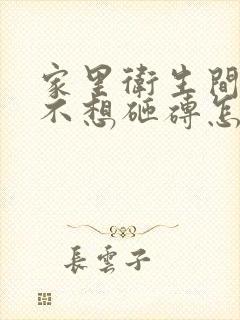 家里衛生間
不想砸磚怎
長雲子